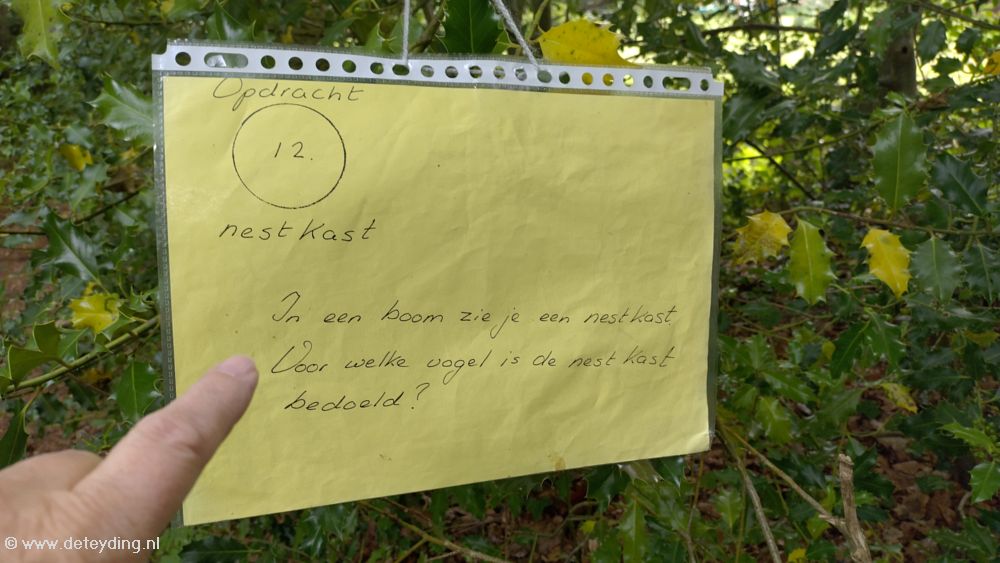 Opdracht
12.
nestkast
In een boom zie je een nestkast.
Voor welke vogel is de nestkast
bedoeld?
© www.deteyding.nl